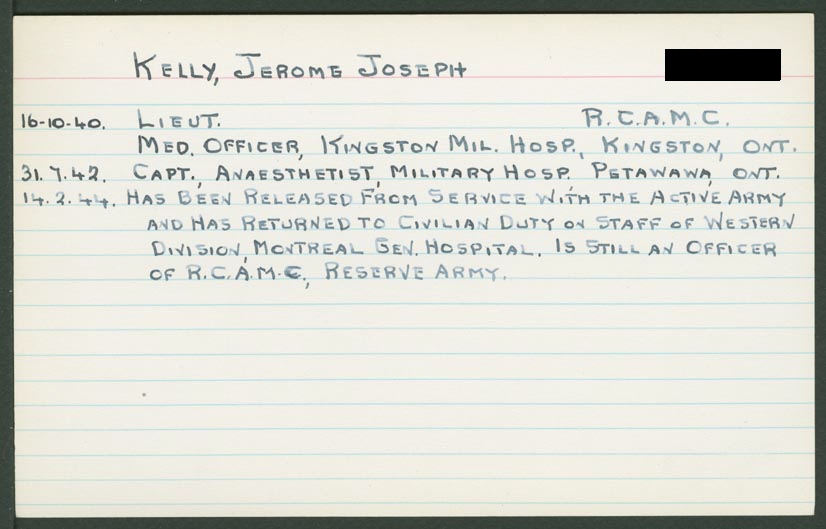 KELLY, JEROME JOSEPH
16-10-40. LIEUT. R.C.A.M.C.
MED. OFFICER, KINGSTON MIL. HOSP., KINGSTON, ONT.
31.7.42. CAPT., ANAESTHETIST, MILITARY HOSP. PETAWAWA, ONT.
14.2.44. HAS BEEN RELEASED FROM SERVICE WITH THE ACTIVE ARMY
AND HAS RETURNED TO CIVILIAN DUTY ON STAFF OF WESTERN
DIVISION, MONTREAL GEN. HOSPITAL. IS STILL AN OFFICER
OF R.C.A.M.C., RESERVE ARMY.